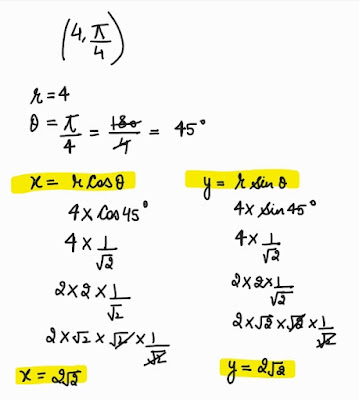 (4, π/4)
r = 4
θ = π/4 = 180/4 = 45°
x = r cos θ
4 × cos 45°
4 × 1/√2
2 × 2 × 1/√2
2 × √2 × √2 × 1/√2
x = 2√2
y = r sin θ
4 × sin 45°
4 × 1/√2
2 × 2 × 1/√2
2 × √2 × √2 × 1/√2
y = 2√2